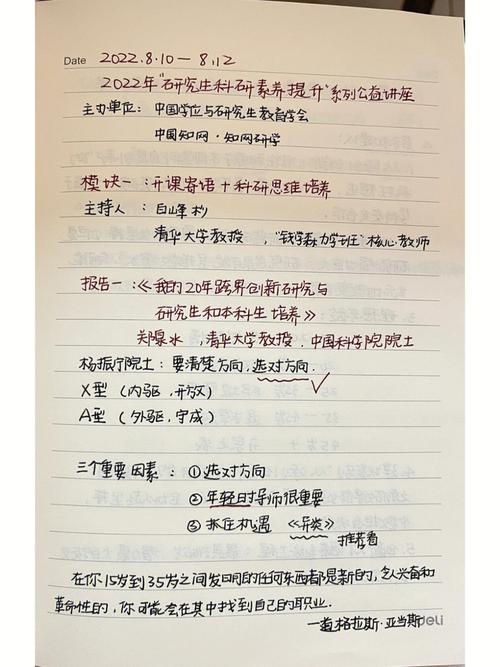 Date 2022.8.10 — 8.12
2022年"研究生科研素养提升"系列公益讲座
主办单位：中国学位与研究生教育学会
中国知网·知网研学
模块一：开课寄语+科研思维培养
主持人：白峰杉
清华大学教授，"钱学森力学班"核心教师
报告一：《我的20年跨界创新研究与
研究生和本科生培养》
郑泉水，清华大学教授，中国科学院院士
杨振宁院士：要清楚方向，选对方向.
X型（内驱，开放）
A型（外驱，守成）
三个重要因素：①选对方向
②年轻时导师很重要
③抓住机遇《异类》
推荐看
在你15岁到35岁之间发明的任何东西都是新的，令人兴奋和
革命性的，你可能会在其中找到自己的职业.
—道格拉斯·亚当斯
deli